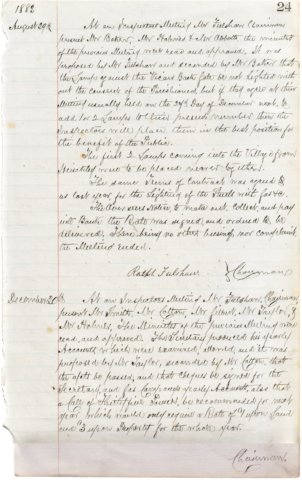 1882
24
August 29th At an Inspectors Meeting Mr Fulshaw Chairman
present Mr Baker, Mr Holmes & the minutes
of the previous Meeting were read and approved. It was
proposed by Mr Fulshaw and seconded by Mr Baker that
the Lamps against the Vicars Bank Gate be not lighted with
out the consent of the Parishioned but if they agree at their
Meeting usually held on the 24th Day of December next to
add 1 or 2 Lamps to their present number then the
Inspectors will place them in the best position for
the benefit of the Public.
The first 2 Lamps coming into the Village from
be placed nearer by
The same terms of Contract was agreed to
as last year for the Lighting of the Parish
The Overseers Notice to make out, Collect, and pay
into Bank the Rate was signed and ordered to be
delivered. There being no other business, nor complaint
the Meeting ended.
Ralph Fulshaw } Chairman
December At an Inspectors Meeting Mr Fulshaw, Chairman
present Mr Smith, Mr Mr Mr Taylor, &
Mr Holmes, The Minutes of the previous Meeting was
read, and approved. The Secretary produced his yearly
Accounts which were examined, allowed, and it was
proposed by Mr Taylor, seconded by Mr
that the be passed, and that cheques be signed for the
Secretary, and Gas Companys yearly Accounts, also that
a fall of be recommended for next
year, which would only require a Rate of upon Land
and 3 upon Property for the whole year.
Chairman